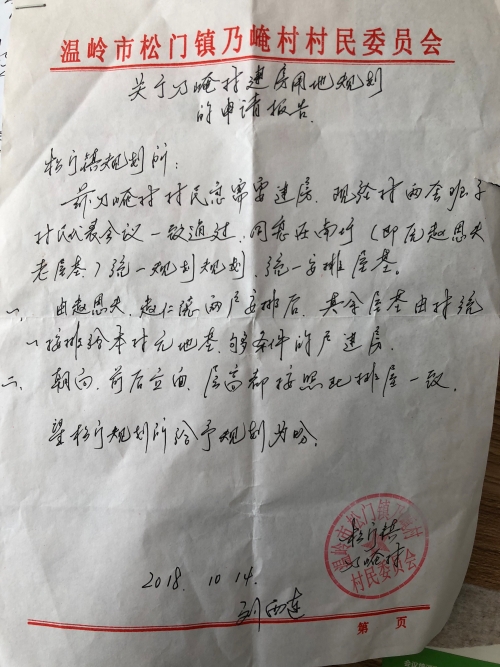 温岭市松门镇乃崦村村民委员会
关于乃崦村建房用地规划
的申请报告
松门镇规划所：
兹乃崦村村民急需要建房，现经村两套班子
村民代表会议一致通过，同意在南圩（即原赵恩夫
老屋基）统一规划规划，统一安排屋基。
一、由赵恩夫、赵仁 两户安排后，其余屋基由村统
一按排给本村无地基，够条件的户建房。
二、朝向，前后立面，层高都按照 排屋一致。
望松门规划所给予规划为盼。
松门镇
乃崦村
温岭市松门镇乃崦村
村民委员会
2018. 10 14.
第 页